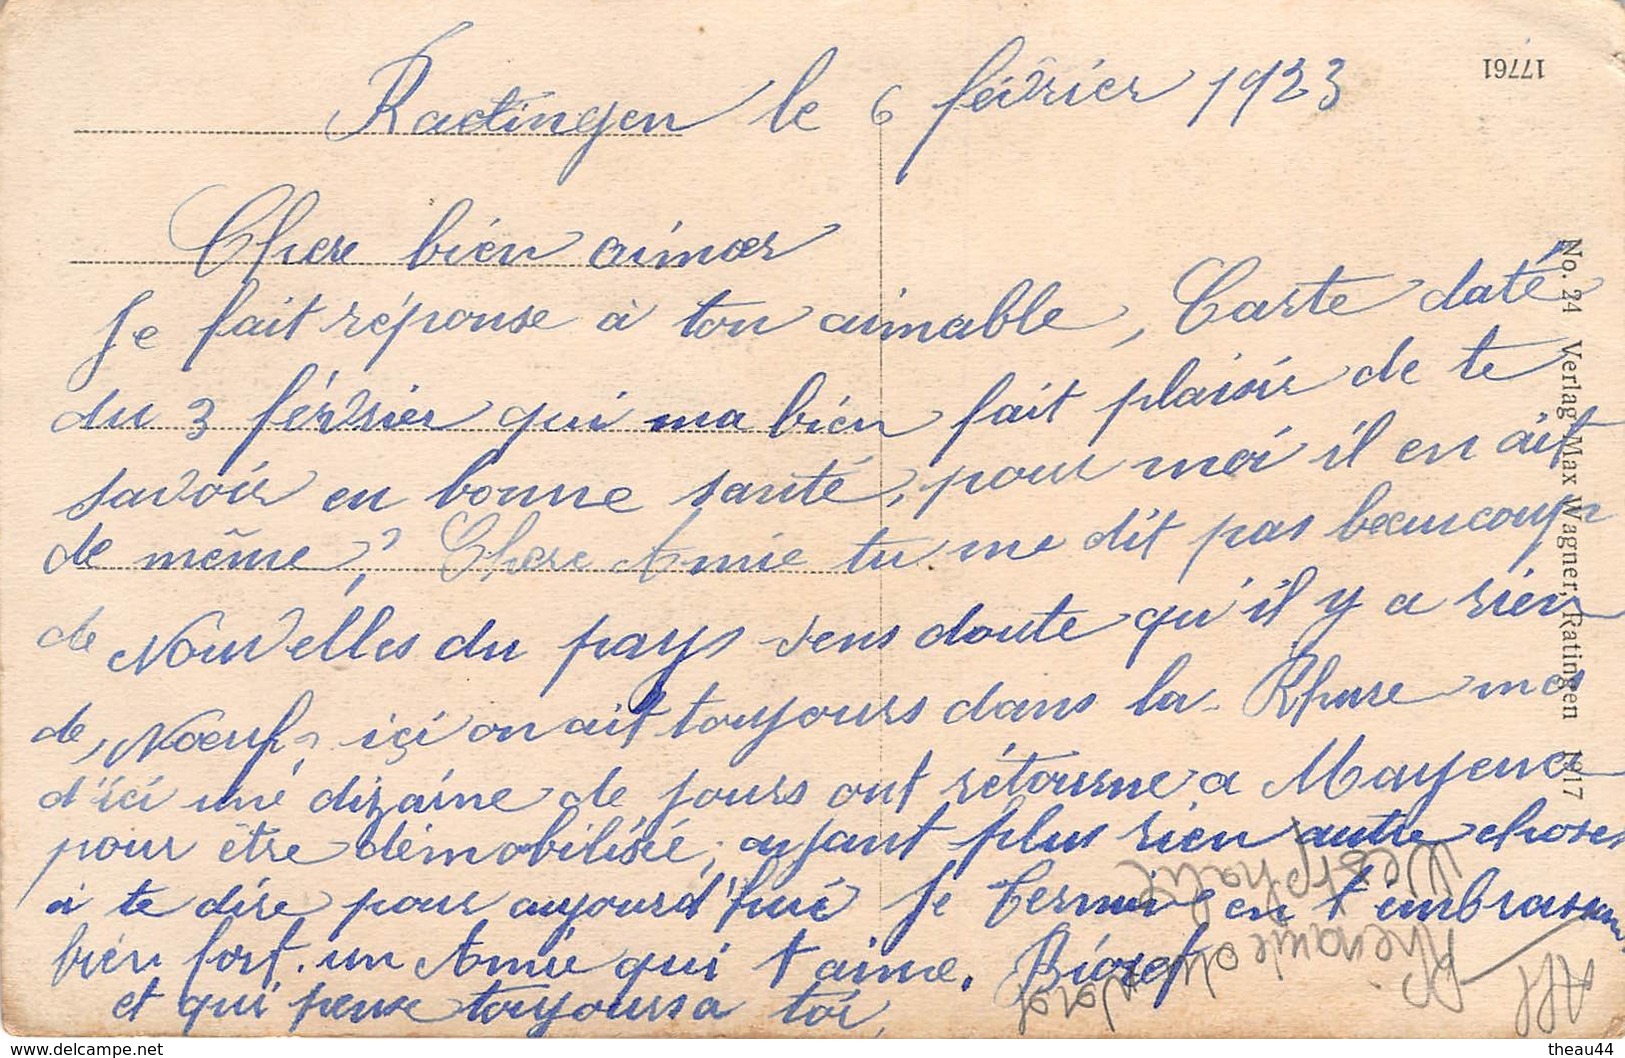 Ractingen le 6 février 1923
17761
Chere bien aimær
Je fait réponse à ton aimable, Carte daté
du 3 février qui ma bien fait plaisir de te
savoir en bonne santé, pour moi il en ait
de même, Chere Amie tu me dit pas beaucoup
de Nouvelles du pays sens doute qu'il y a rien
de Nœuf, içi on ait toujours dans la Rhure mes
d'ici une dizaine de jours ont rétourne a Mayence
pour être démobilisée, ayant plus rien autre choses
à te dire pour aujourd'hui Je termine en t'embrassan
bien fort. un Amie qui t'aime.
et qui pense toujours a toi,
No. 24 Verlag Max Wagner, Ratingen 1917
All
Rhenanie du Nord
Westphalie
delcampe.net
theau44